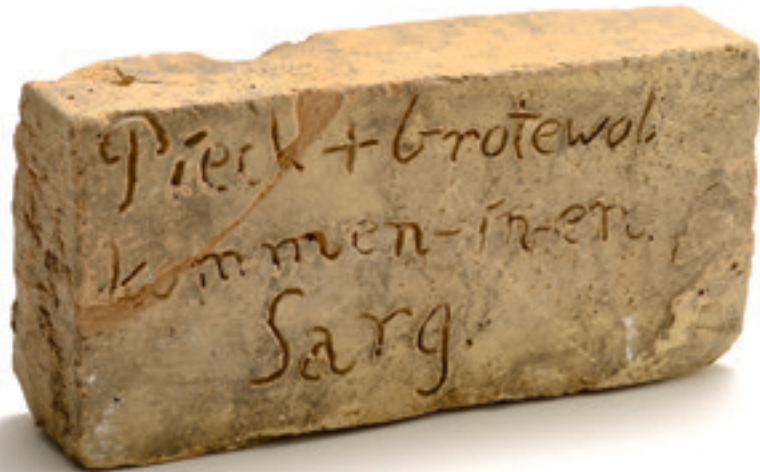 Pieck + Grotewol
kommen-in-en.
Sarg.